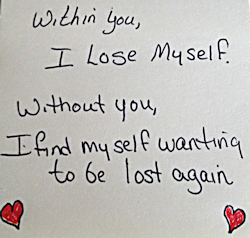 Within you,
I Lose Myself.
Without you,
I find myself wanting
to be lost again